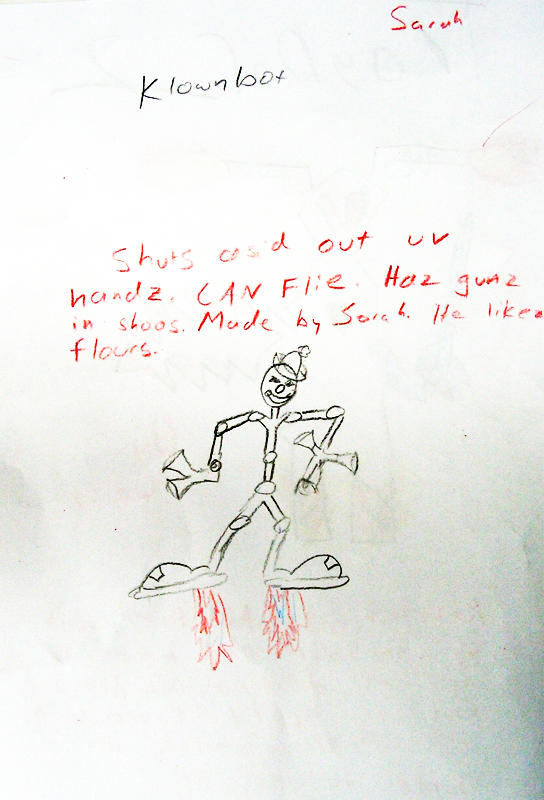 Sarah
Klownbot
Shuts asid out uv
handz. CAN Flie. Haz gunz
in shoos. Made by Sarah. He likez
flours.